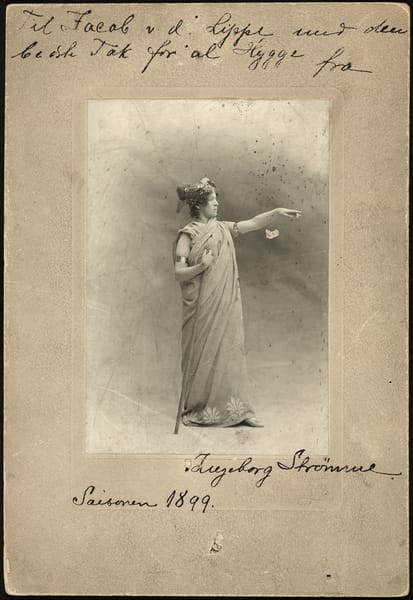 Til Jacob v d. Lippe med den
bedste Tak for al Hygge
fra
Ingeborg Strömme.
Saisonen 1899.